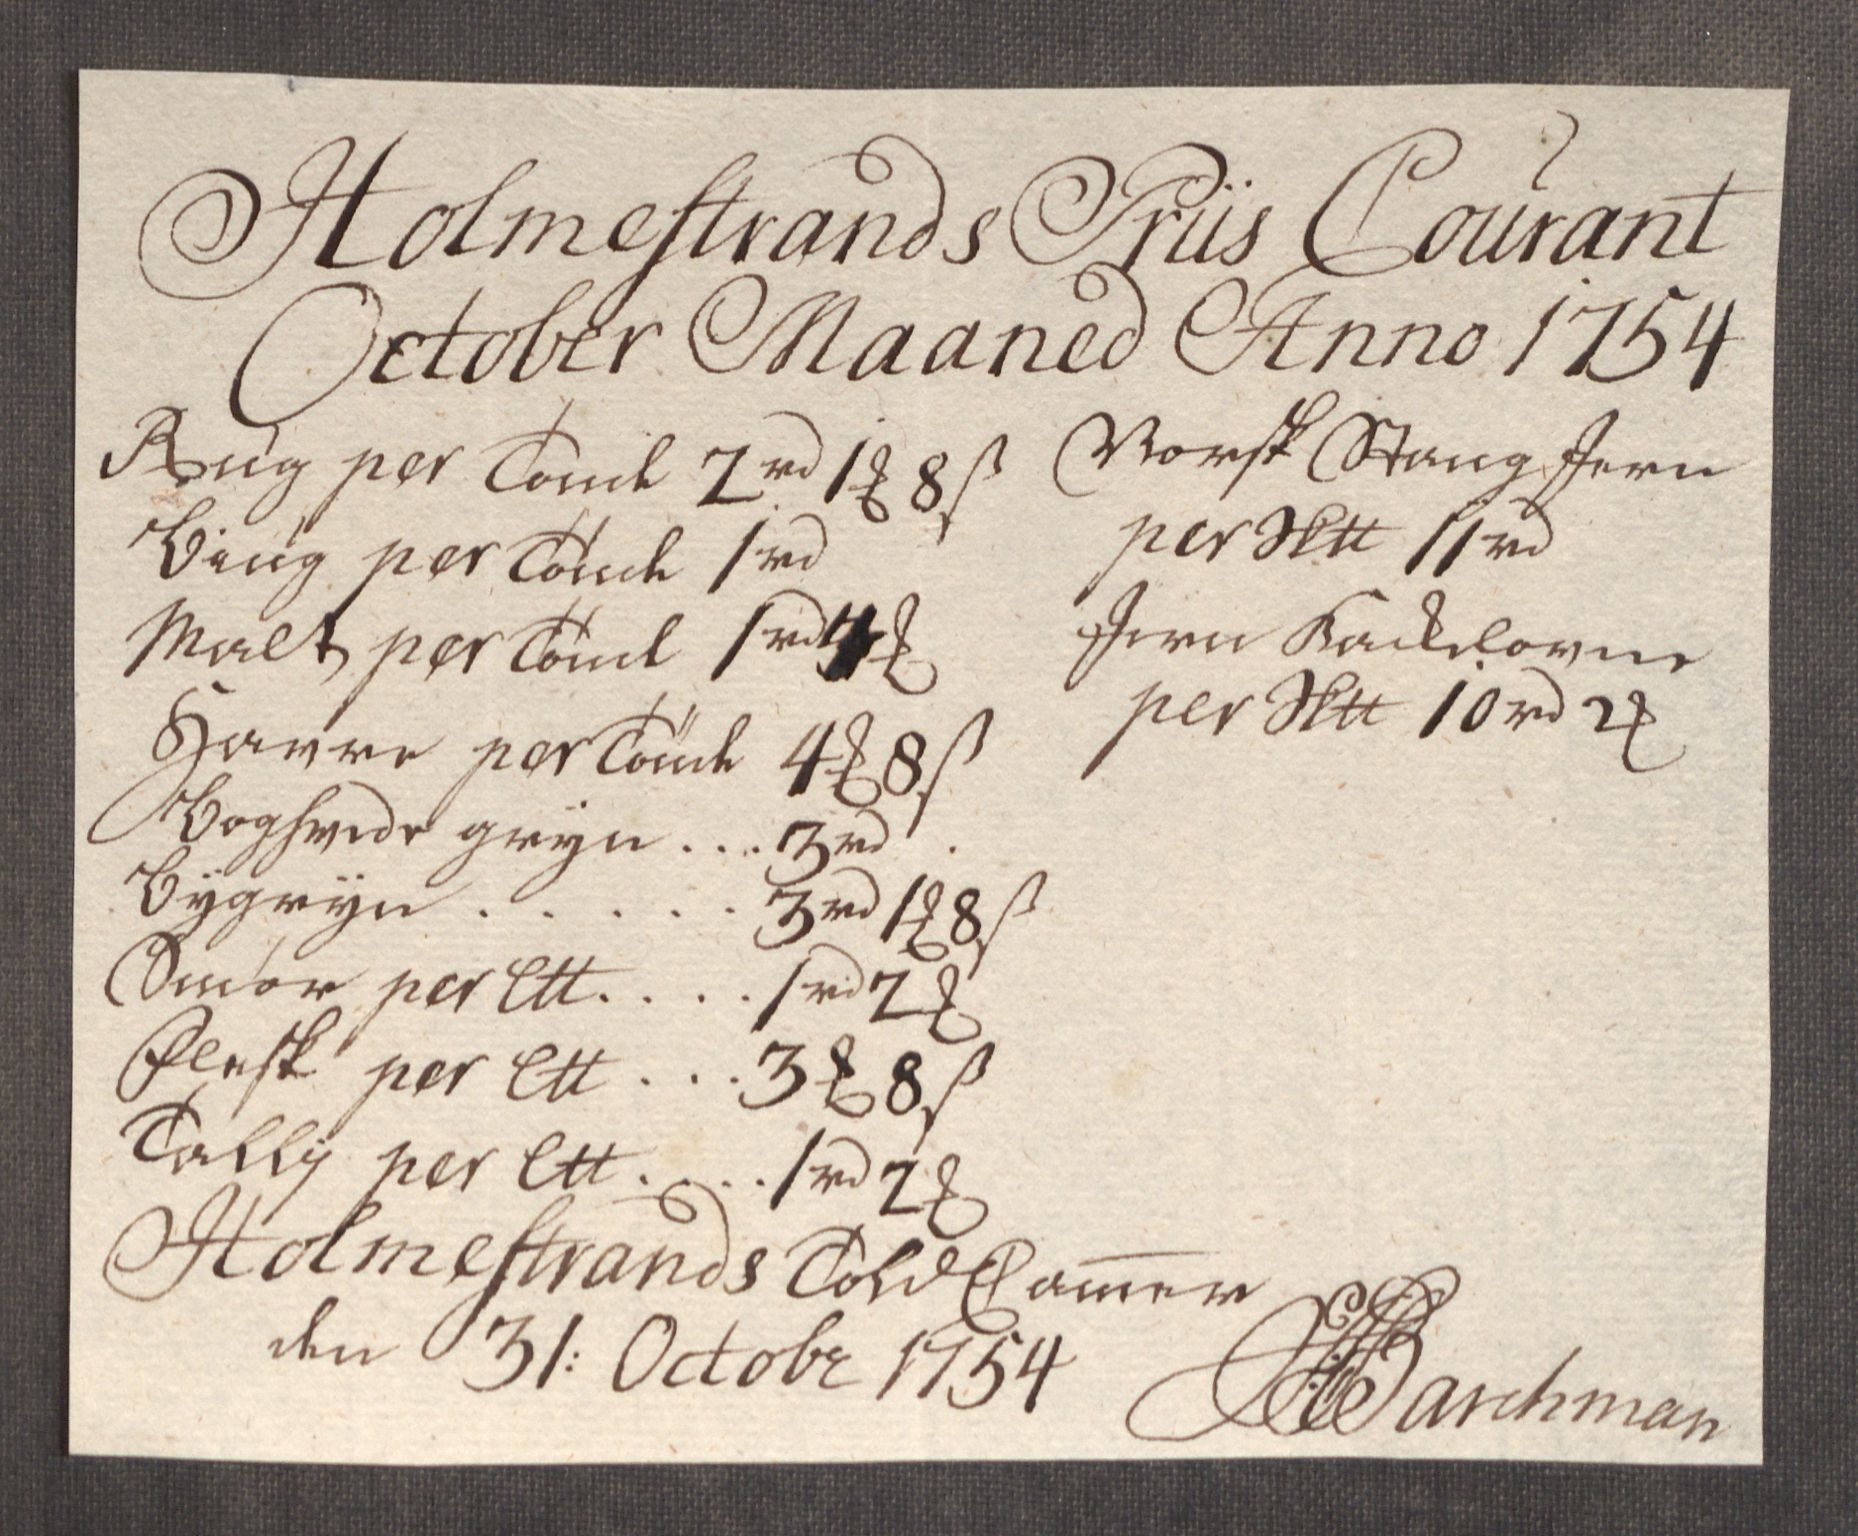 Holmestrands Priis Courant
October Maaned Anno 1754
Rug per Tønde 2 rd 1 ℳ 8 ß
Biúg per Tønde 1 rd
Malt per Tønde 1 rd ℳ
Havre per Tønde 4 ℳ 8 ß
Boghvede gryn . . . 3 rd .
Bÿgrÿn . . . . . . 3 rd 1 ℳ 8 ß
Smør per Ltt. . . . 1 rd 2 ℳ
Flesk per Ltt . . . 3 ℳ 8 ß
Tallij per Ltt . . . . 1 rd 2 ℳ
Norsk Stang Jern
per Sktt 11 rd
Jern Kackelovne
per Sktt 10 rd 2 ℳ
Holmestrands Told Cam̄er
den 31: Octobr 1754
Barchman